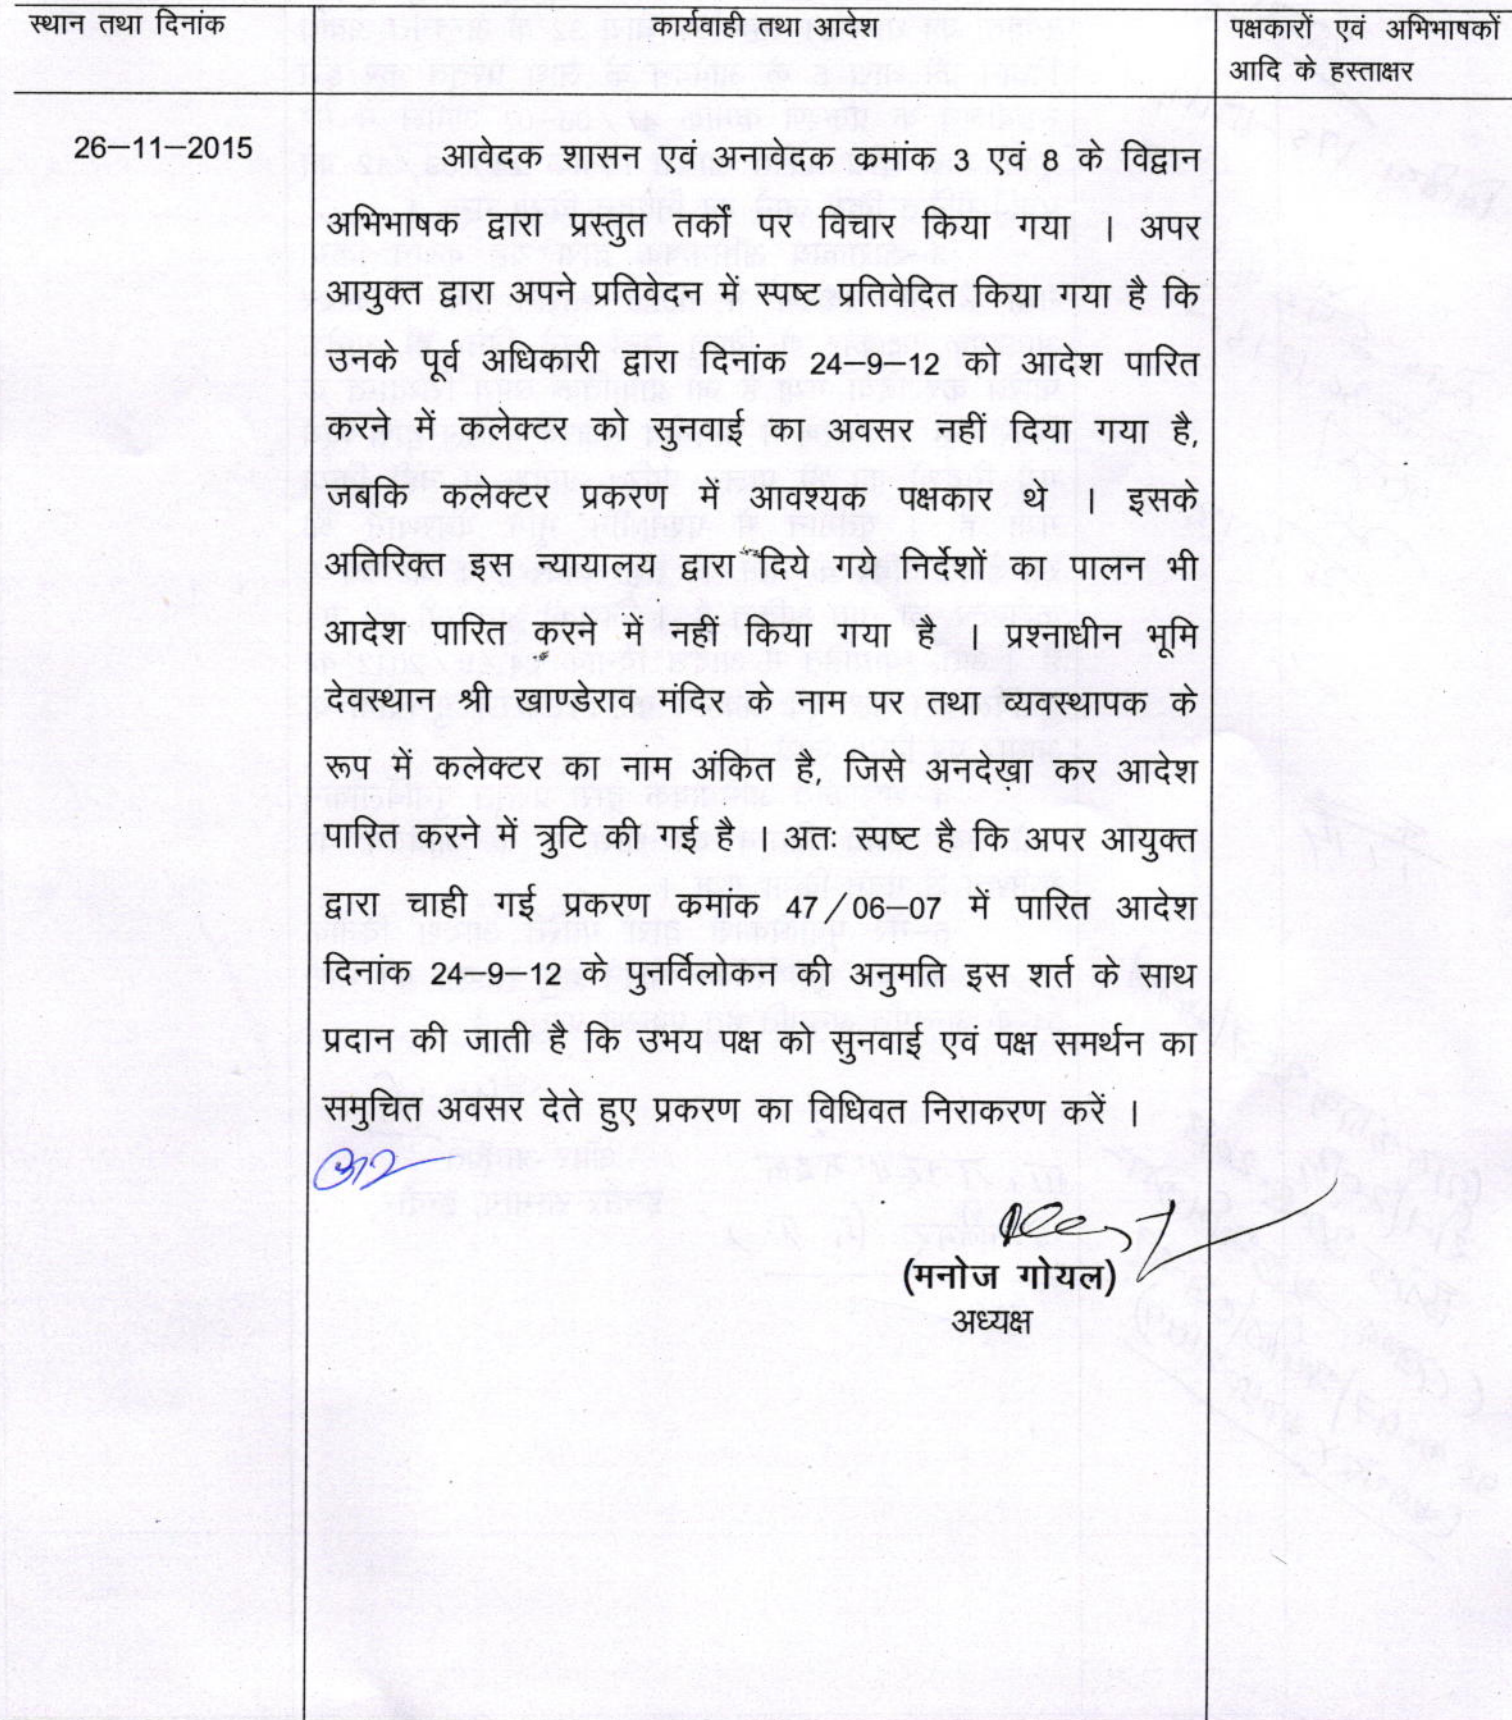 स्थान तथा दिनांक
कार्यवाही तथा आदेश
पक्षकारों एवं अभिभाषकों
आदि के हस्ताक्षर
26–11–2015
आवेदक शासन एवं अनावेदक कमांक 3 एवं 8 के विद्वान
अभिभाषक द्वारा प्रस्तुत तर्कों पर विचार किया गया । अपर
आयुक्त द्वारा अपने प्रतिवेदन में स्पष्ट प्रतिवेदित किया गया है कि
उनके पूर्व अधिकारी द्वारा दिनांक 24–9–12 को आदेश पारित
करने में कलेक्टर को सुनवाई का अवसर नहीं दिया गया है,
जबकि कलेक्टर प्रकरण में आवश्यक पक्षकार थे । इसके
अतिरिक्त इस न्यायालय द्वारा दिये गये निर्देशों का पालन भी
आदेश पारित करने में नहीं किया गया है । प्रश्नाधीन भूमि
देवस्थान श्री खाण्डेराव मंदिर के नाम पर तथा व्यवस्थापक के
रूप में कलेक्टर का नाम अंकित है, जिसे अनदेखा कर आदेश
पारित करने में त्रुटि की गई है । अतः स्पष्ट है कि अपर आयुक्त
द्वारा चाही गई प्रकरण कमांक 47/06–07 में पारित आदेश
दिनांक 24–9–12 के पुनर्विलोकन की अनुमति इस शर्त के साथ
प्रदान की जाती है कि उभय पक्ष को सुनवाई एवं पक्ष समर्थन का
समुचित अवसर देते हुए प्रकरण का विधिवत निराकरण करें ।
(मनोज गोयल)
अध्यक्ष